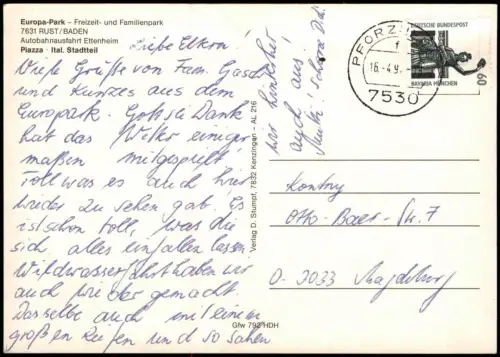 Europa-Park – Freizeit- und Familienpark
7631 RUST/BADEN
Autobahnausfahrt Ettenheim
Piazza · Ital. Stadtteil
Liebe Eltern!
Viele Grüße von Fam.
und Kurzes aus dem
Europark. Gott sei Dank
hat das Wetter einiger
maßen mitgespielt
Toll was es auch hier
wieder zu sehen gab. Es
ist schon toll, was die
sich alles einfallen lassen
Wildwasserfahrt haben wir
auch wieder gemacht.
Dasselbe auch mit einem
großen Reifen und so sahen
wir hinterher
auch aus!
Verlag D. Stumpf, 7832 Kenzingen – AL 216
Gfw 792 HDH
PFORZ
f
16.-4.9
7530
DEUTSCHE BUNDESPOST
BAVARIA MÜNCHEN
60
Kontny
Otto-Baer-Str. 7
O-3033 Magdeburg